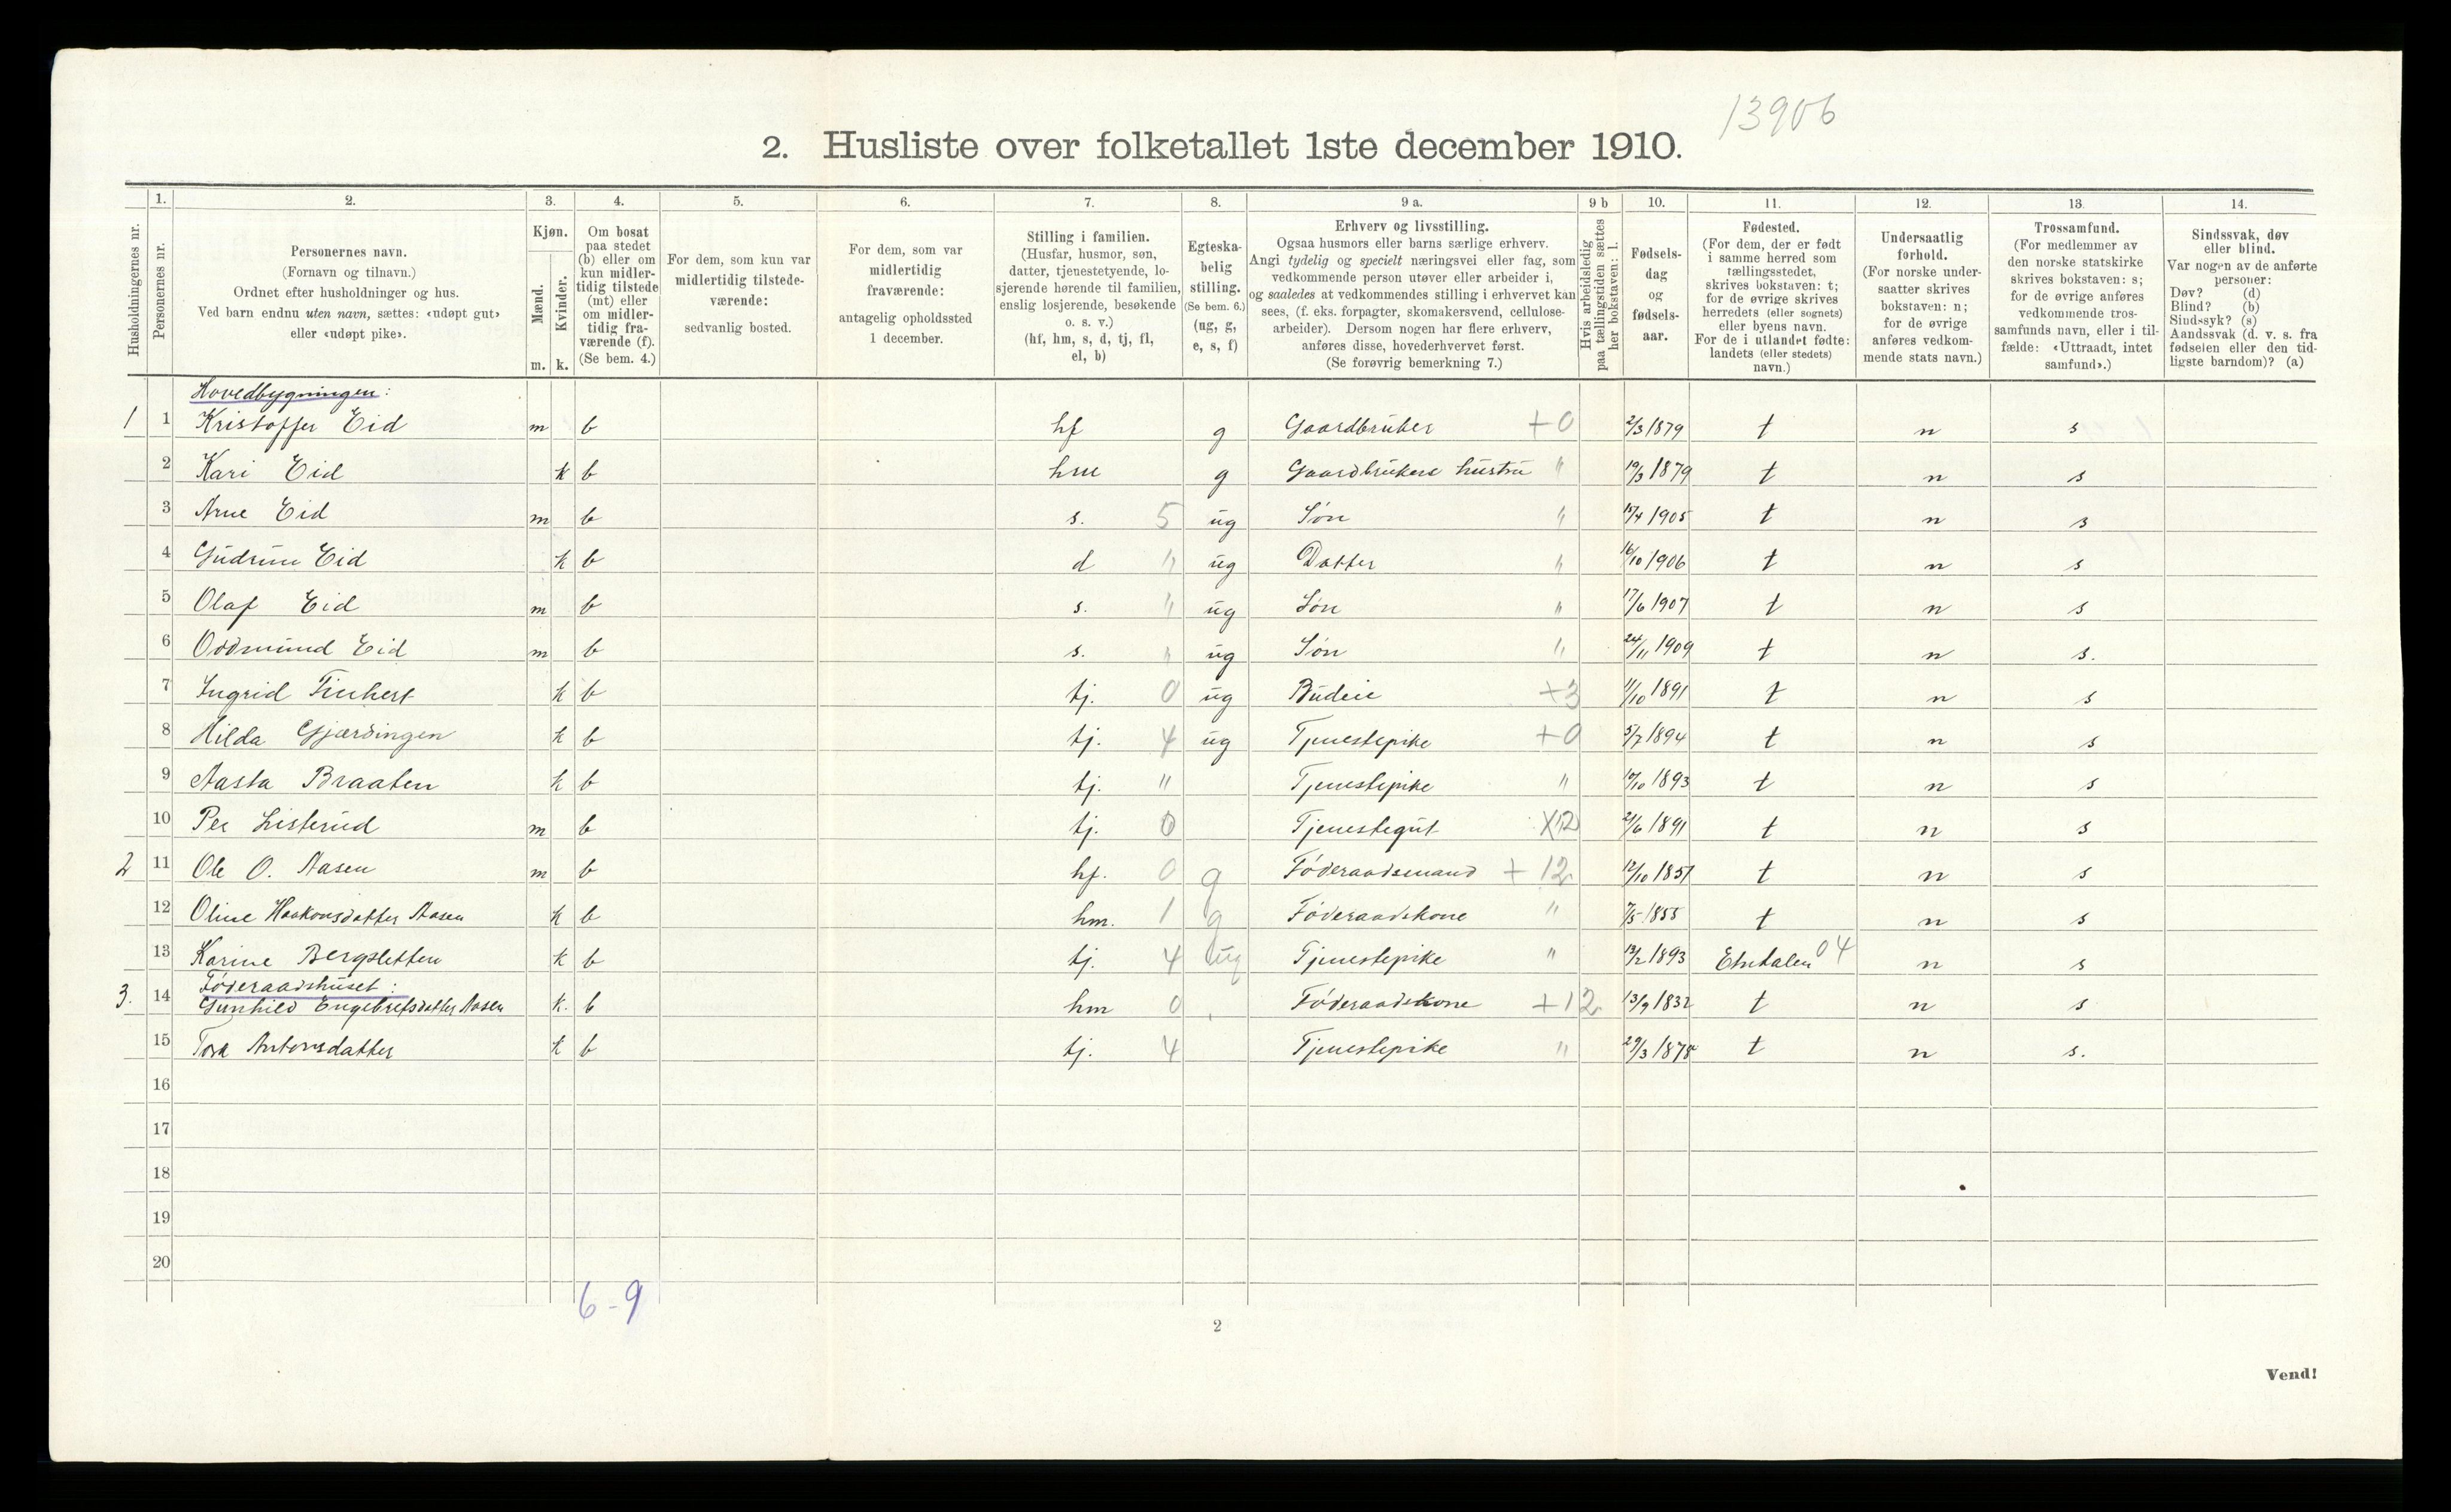 13906
2. Husliste over folketallet 1ste december 1910.
Husholdningernes nr.
1. Personernes nr.
2. Personernes navn. (Fornavn og tilnavn.) Ordnet efter husholdninger og hus. Ved barn endnu uten navn, sættes: «udøpt gut» eller «udøpt pike».
3. Kjøn. Mænd. m. Kvinder. k.
4. Om bosat paa stedet (b) eller om kun midlertidig tilstede (mt) eller om midlertidig fraværende (f). (Se bem. 4.)
5. For dem, som kun var midlertidig tilstedeværende: sedvanlig bosted.
6. For dem, som var midlertidig fraværende: antagelig opholdssted 1 december.
7. Stilling i familien. (Husfar, husmor, søn, datter, tjenestetyende, losjerende hørende til familien, enslig losjerende, besøkende o. s. v.) (hf, hm, s, d, tj, fl, el, b)
8. Egteskabelig stilling. (Se bem. 6.) (ug, g, e, s, f)
9 a. Erhverv og livsstilling. Ogsaa husmors eller barns særlige erhverv. Angi tydelig og specielt næringsvei eller fag, som vedkommende person utøver eller arbeider i, og saaledes at vedkommendes stilling i erhvervet kan sees, (f. eks. forpagter, skomakersvend, cellulosearbeider). Dersom nogen har flere erhverv, anføres disse, hovederhvervet først. (Se forøvrig bemerkning 7.)
9 b Hvis arbeidsledig paa tællingstiden sættes her bokstaven: l.
10. Fødselsdag og fødselsaar.
11. Fødested. (For dem, der er født i samme herred som tællingsstedet, skrives bokstaven: t; for de øvrige skrives herredets (eller sognets) eller byens navn. For de i utlandet fødte: landets (eller stedets) navn.)
12. Undersaatlig forhold. (For norske undersaatter skrives bokstaven: n; for de øvrige anføres vedkommende stats navn.)
13. Trossamfund. (For medlemmer av den norske statskirke skrives bokstaven: s; for de øvrige anføres vedkommende trossamfunds navn, eller i tilfælde: «Uttraadt, intet samfund».)
14. Sindssvak, døv eller blind. Var nogen av de anførte personer: Døv? (d) Blind? (b) Sindssyk? (s) Aandssvak (d. v. s. fra fødselen eller den tidligste barndom)? (a)
Hovedbygningen:
1 1 Kristoffer Eid m b hf g Gaardbruker +0 2/3 1879 t n s
2 Kari Eid k b hm g Gaardbrukers hustru " 19/3 1879 t n s
3 Arne Eid m b s. 5 ug Søn " 15/4 1905 t n s
4 Gudrun Eid k b d " ug Datter " 16/10 1906 t n s
5 Olaf Eid m b s. " ug Søn " 17/6 1907 t n s
6 Oddmund Eid m b s. " ug Søn " 24/11 1909 t n s.
7 Ingrid k b tj. 0 ug Budeie +3 11/10 1891 t n s
8 Hilda Gjærdingen k b tj. 4 ug Tjenestepike +0 5/7 1894 t n s
9 Aasta Braaten k b tj. " Tjenestepike " 1893 t n s
10 Per Listerud m b tj. 0 Tjenestegut X12 21/6 1891 t n s
2 11 Ole O. Aasen m b hf. 0 g Føderaadsmand +12 12/10 1851 t n s
12 Oline Haakonsdatter Aasen k b hm. 1 g Føderaadskone " 7/5 1855 t n s
13 Karine Bergsletten k b tj. 4 ug Tjenestepike " 13/2 1893 Etnedalen 04 n s
Føderaadshuset:
3. 14 Gunhild Engebretsdatter Aasen k. b hm 0 Føderaadskone +12 13/9 1832 t n s
15 Tora Antonsdatter k b tj. 4 Tjenestepike " 29/3 1878 t n s.
16
17
18
19
20
6-9
2
Vend!